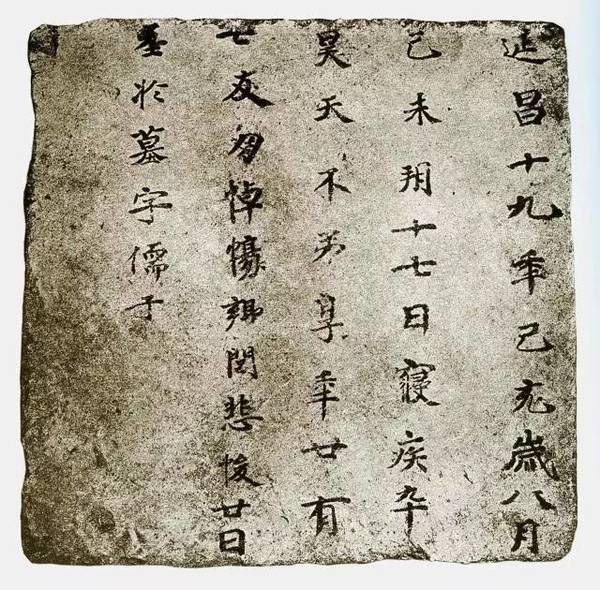 延昌十九年己亥歲八月
己未朔十七日寢疾卒
昊天不弔享年廿有
七友朋悼傷鄉閭悲悛廿日
於墓字儒子